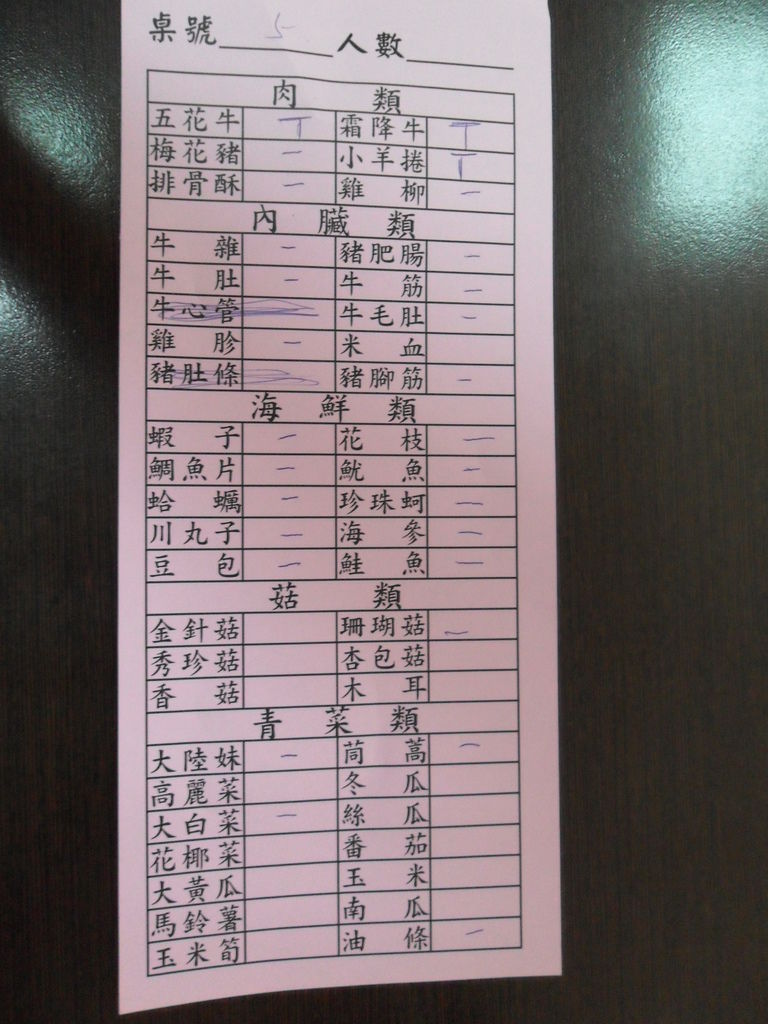 桌號 5 人數
肉 類
五花牛 T 霜降牛 T
梅花豬 一 小羊捲 T
排骨酥 一 雞柳 一
內 臟 類
牛雜 一 豬肥腸 一
牛肚 一 牛筋 一
牛心管 牛毛肚 一
雞胗 一 米血
豬肚條 豬腳筋 一
海 鮮 類
蝦子 一 花枝 一
鯛魚片 一 魷魚 一
蛤蠣 一 珍珠蚵 一
川丸子 一 海參 一
豆包 一 鮭魚 一
菇 類
金針菇 珊瑚菇 一
秀珍菇 杏包菇
香菇 木耳
青 菜 類
大陸妹 一 茼蒿 一
高麗菜 冬瓜
大白菜 一 絲瓜
花椰菜 番茄
大黃瓜 玉米
馬鈴薯 南瓜
玉米筍 油條 一